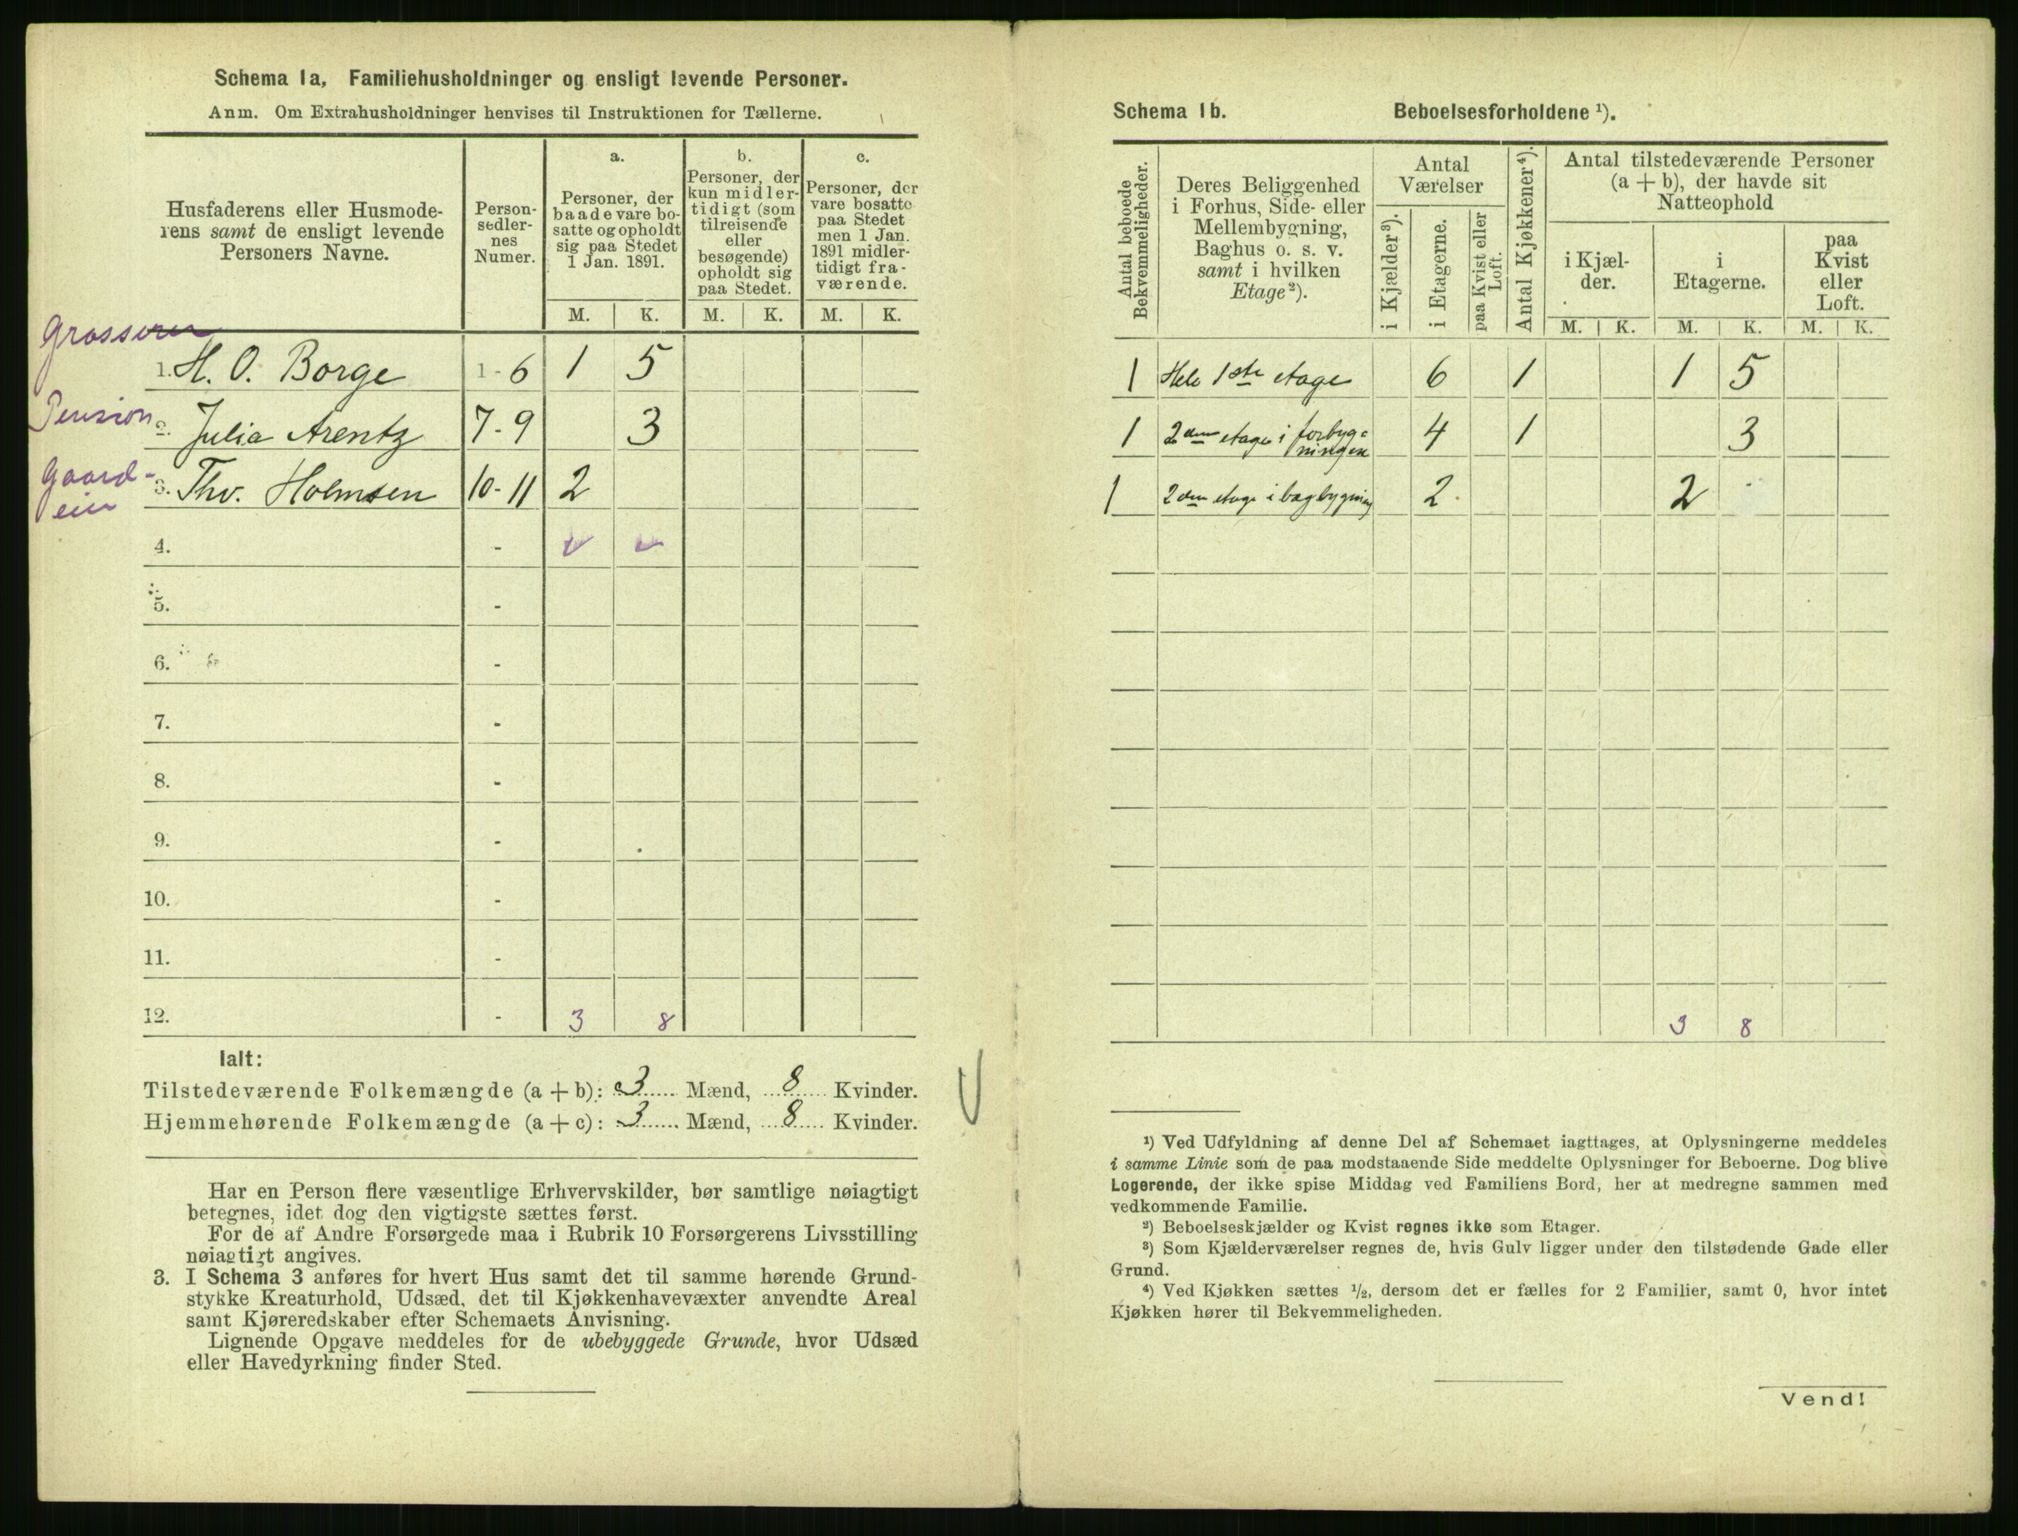 Schema 1a, Familiehusholdninger og ensligt levende Personer.
Anm. Om Extrahusholdninger henvises til Instruktionen for Tællerne.
Husfaderens eller Husmode-
rens samt de ensligt levende
Personers Navne.
Person-
sedler-
nes
Numer.
a.
Personer, der
baade vare bo-
satte og opholdt
sig paa Stedet
1 Jan. 1891.
b.
Personer, der
kun midler-
tidigt (som
tilreisende
eller
besøgende)
opholdt sig
paa Stedet.
c.
Personer, der
vare bosatte
paa Stedet
men 1 Jan.
1891 midler-
tidigt fra-
værende.
M. K. M. K. M. K.
Grosserer
1. H. O. Borge 1-6 1 5
Pension
2. Julia Arentz 7-9 3
Gaard-
eier
3. Thv. Holmsen 10-11 2
4. -
5. -
6. -
7. -
8. -
9. -
10. -
11. -
12. - 3 8
Ialt:
Tilstedeværende Folkemængde (a + b): 3 Mænd, 8 Kvinder.
Hjemmehørende Folkemængde (a + c): 3 Mænd, 8 Kvinder.
Har en Person flere væsentlige Erhvervskilder, bør samtlige nøiagtigt
betegnes, idet dog den vigtigste sættes først.
For de af Andre Forsørgede maa i Rubrik 10 Forsørgerens Livsstilling
nøiagtigt angives.
3. I Schema 3 anføres for hvert Hus samt det til samme hørende Grund-
stykke Kreaturhold, Udsæd, det til Kjøkkenhavevæxter anvendte Areal
samt Kjøreredskaber efter Schemaets Anvisning.
Lignende Opgave meddeles for de ubebyggede Grunde, hvor Udsæd
eller Havedyrkning finder Sted.
Schema 1b. Beboelsesforholdene ¹).
Antal beboede
Bekvemmeligheder.
Deres Beliggenhed
i Forhus, Side- eller
Mellembygning,
Baghus o. s. v.
samt i hvilken
Etage²).
Antal
Værelser
i Kjælder³).
i Etagerne.
paa Kvist eller
Loft.
Antal Kjøkkener⁴).
Antal tilstedeværende Personer
(a + b), der havde sit
Natteophold
i Kjæl-
der.
i
Etagerne.
paa
Kvist
eller
Loft.
M. K. M. K. M. K.
1 Hele 1ste etage 6 1 1 5
1 2den etage i forbyg-
ningen 4 1 3
1 2den etage i bagbygning 2 2
3 8
¹) Ved Udfyldning af denne Del af Schemaet iagttages, at Oplysningerne meddeles
i samme Linie som de paa modstaaende Side meddelte Oplysninger for Beboerne. Dog blive
Logerende, der ikke spise Middag ved Familiens Bord, her at medregne sammen med
vedkommende Familie.
²) Beboelseskjælder og Kvist regnes ikke som Etager.
³) Som Kjælderværelser regnes de, hvis Gulv ligger under den tilstødende Gade eller
Grund.
⁴) Ved Kjøkken sættes ½, dersom det er fælles for 2 Familier, samt 0, hvor intet
Kjøkken hører til Bekvemmeligheden.
Vend!